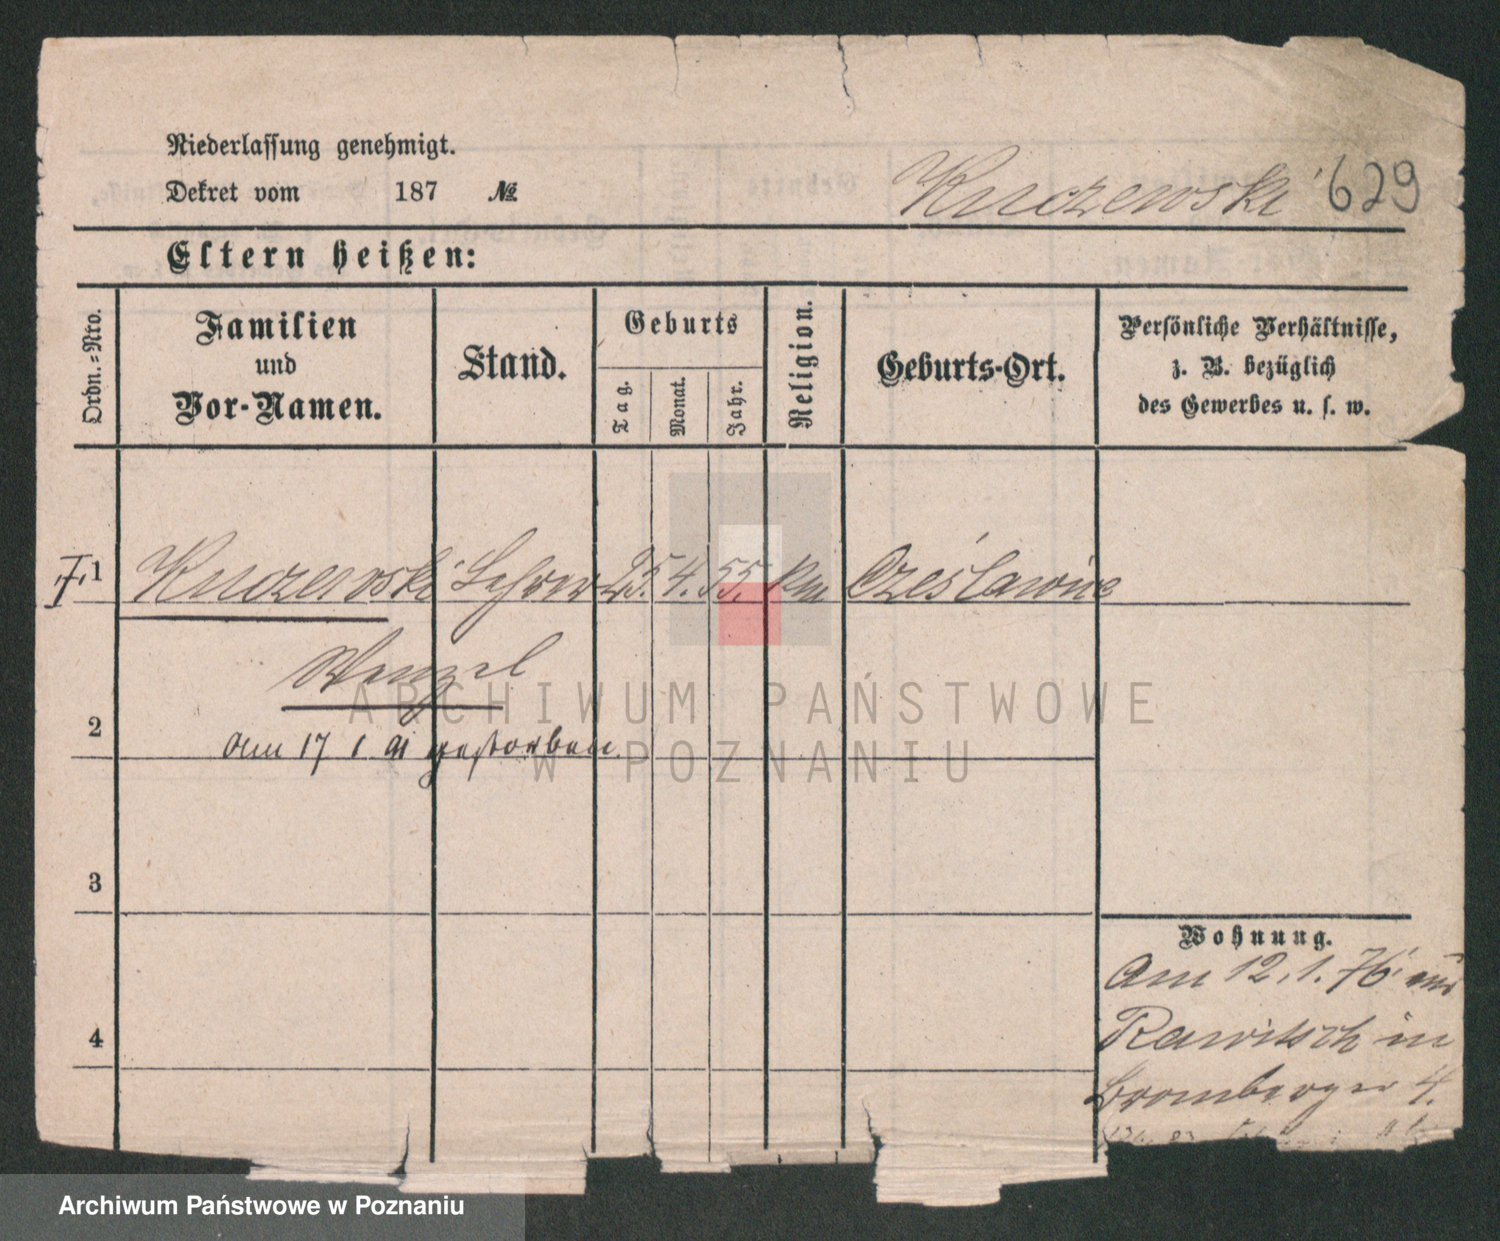 Niederlassung genehmigt.
Dekret vom 187 №
Kuczewski 629
Eltern heißen:
Ordn.=Nro.
Familien
und
Vor-Namen.
Stand.
Geburts
Tag.
Monat.
Jahr.
Religion.
Geburts-Ort.
Persönliche Verhältnisse,
z. B. bezüglich
des Gewerbes u. s. w.
1 Kuczewski Lehrer 25. 4. 55.
Wenzel
2
am 17 1 91 gestorben.
3
4
Wohnung.
Am 12.1.76 aus
Rawitsch in
Bromberger 4.
ARCHIWUM PAŃSTWOWE
W POZNANIU
Archiwum Państwowe w Poznaniu